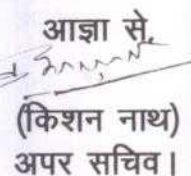 आज्ञा से,
(किशन नाथ)
अपर सचिव।